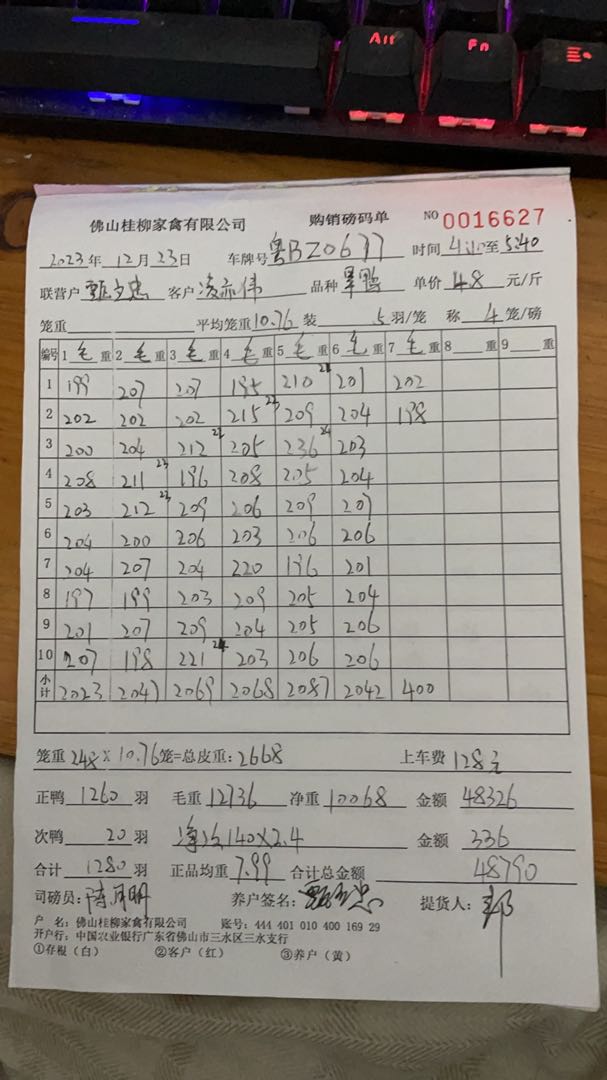 Alt Fn
佛山桂柳家禽有限公司 购销磅码单 NO 0016627
2023年 12月 23日 车牌号 粤BZ0677 时间 至 540
联营户 甄 忠 客户 凌亦伟 品种 单价 4.8 元/斤
笼重 平均笼重 10.76 装 5 羽/笼 称 4 笼/磅
编号 1 毛 重 2 毛 重 3 毛 重 4 毛 重 5 毛 重 6 毛 重 7 毛 重 8 重 9 重
1 199 207 207 195 210 201 202
2 202 202 202 215 209 204 198
3 200 204 212 205 236 203
4 208 211 196 208 205 204
5 203 212 209 206 209 207
6 204 200 206 203 206 206
7 204 207 204 220 196 201
8 197 199 203 209 205 204
9 201 207 209 204 205 206
10 207 198 221 203 206 206
小计 2023 2047 2069 2068 2087 2042 400
笼重 248 × 10.76 笼=总皮重: 2668 上车费 128元
正鸭 1260 羽 毛重 12736 净重 10068 金额 48326
次鸭 20 羽 净 140×2.4 金额 336
合计 1280 羽 正品均重 7.99 合计总金额 48790
司磅员: 陈 明 养户签名: 甄 忠 提货人:
户 名: 佛山桂柳家禽有限公司 账号: 444 401 010 400 169 29
开户行: 中国农业银行广东省佛山市三水区三水支行
①存根(白) ②客户(红) ③养户(黄)